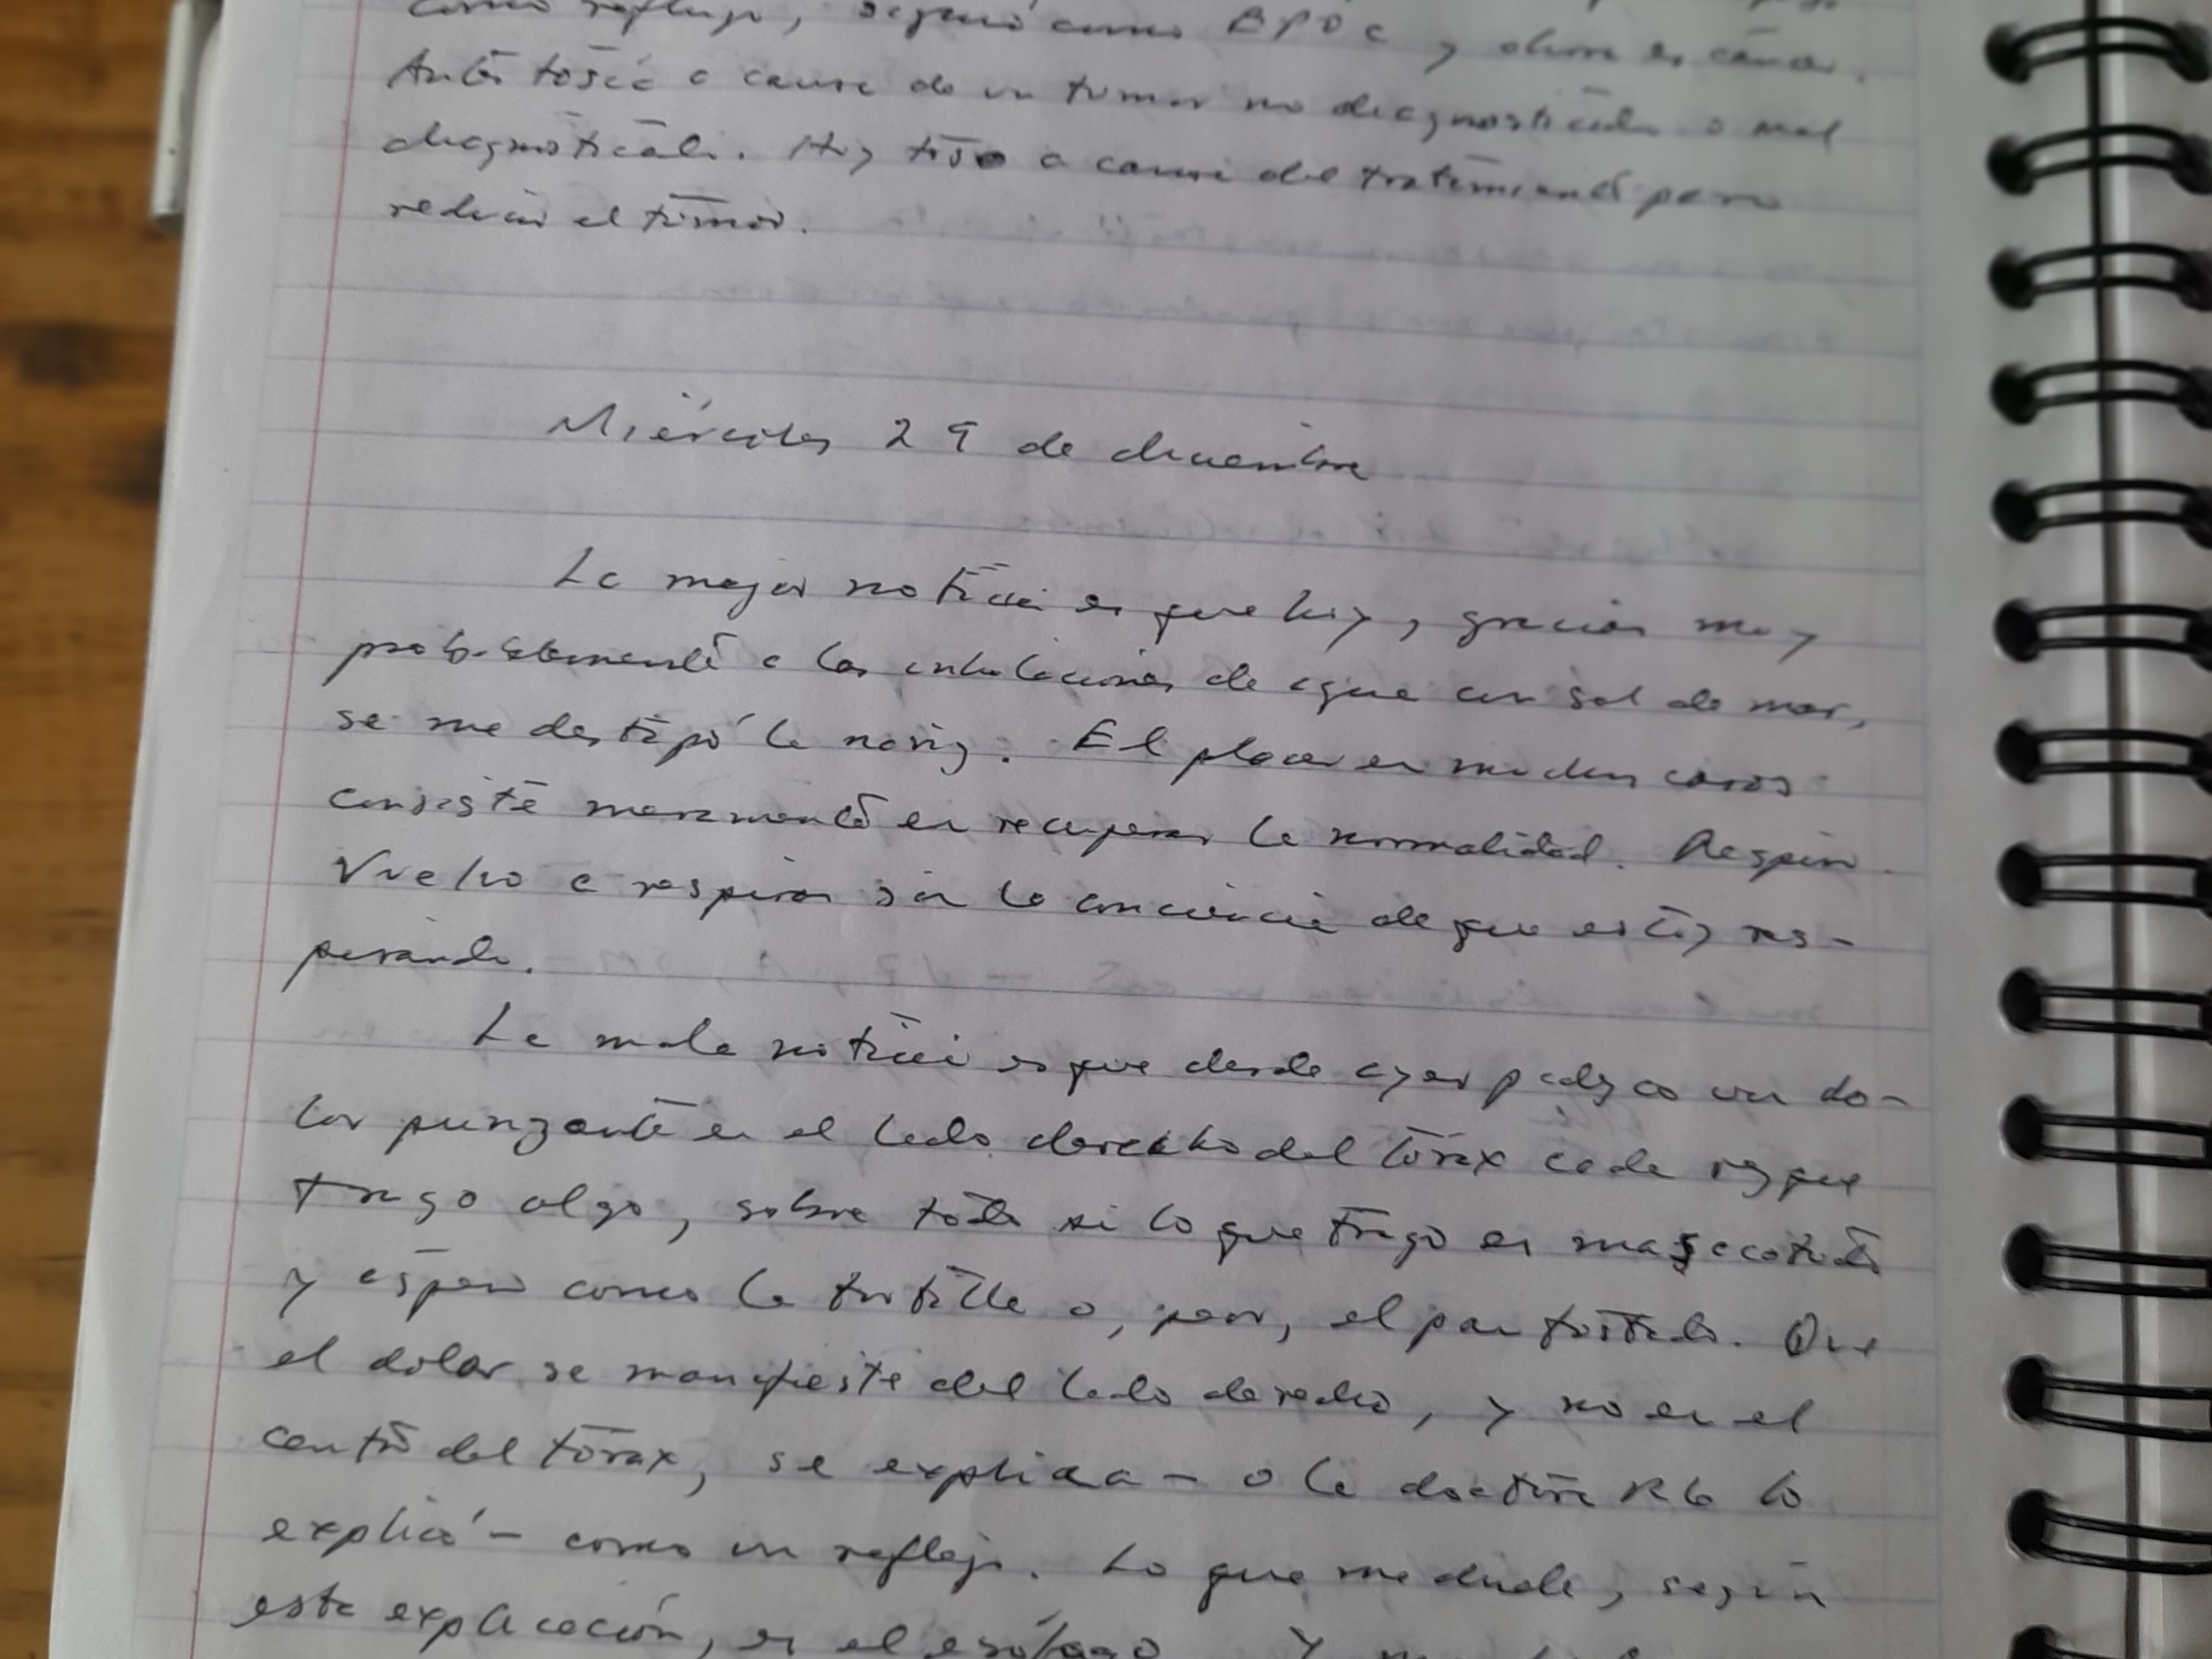 como reflujo, siguió como EPOC y ahora es cáncer.
Antes tosía a causa de un tumor no diagnosticado o mal
diagnosticado. Hoy toso a causa del tratamiento para
reducir el tumor.
Miércoles 29 de diciembre
La mejor noticia es que hoy, gracias muy
probablemente a las inhalaciones de agua con sal de mar,
se me destapó la nariz. El placer en muchos casos
consiste meramente en recuperar la normalidad. Respiro.
Vuelvo a respirar sin la conciencia de que estoy res-
pirando.
La mala noticia es que desde ayer padezco un do-
lor punzante en el lado derecho del tórax cada vez que
trago algo, sobre todo si lo que trago es masacotudo
y áspero como la tortilla o, peor, el pan tostado. Que
el dolor se manifieste del lado derecho, y no en el
centro del tórax, se explica – o la doctora RG lo
explicó – como un reflejo. Lo que me duele, según
esta explicación, es el esófago. Y